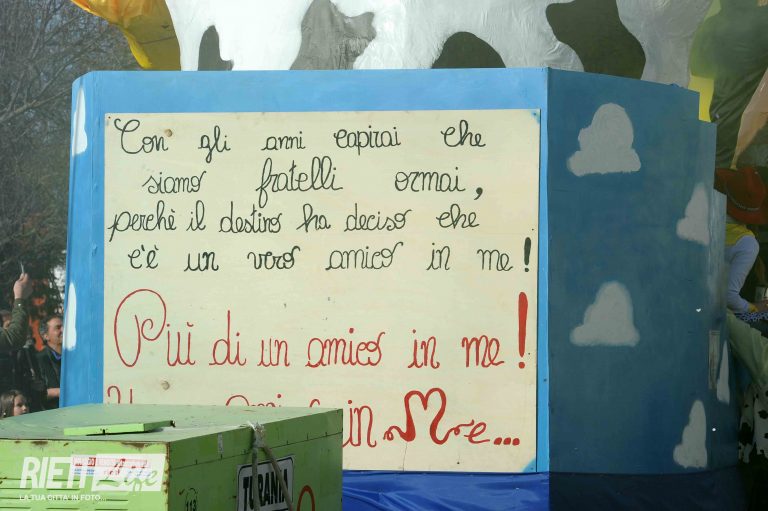 Con gli anni capirai che
siamo fratelli ormai,
perchè il destino ha deciso che
c'è un vero amico in me!
Più di un amico in me!
in me...
TURANIA
113
RIETI Life
LA TUA CITTA' IN FOTO...